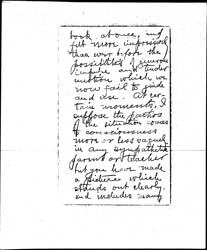 book at once, and
felt more impressed
than ever before the
possibilities of generous
impulse and
motion which we
now fail to guide
and use. At cer-
tain moments, I
suppose the pathos
of the situation comes
to consciousness
more or less vaguely
in any sympathetic
parent or teacher
but you have made
a picture which
stands out clearly,
and includes many